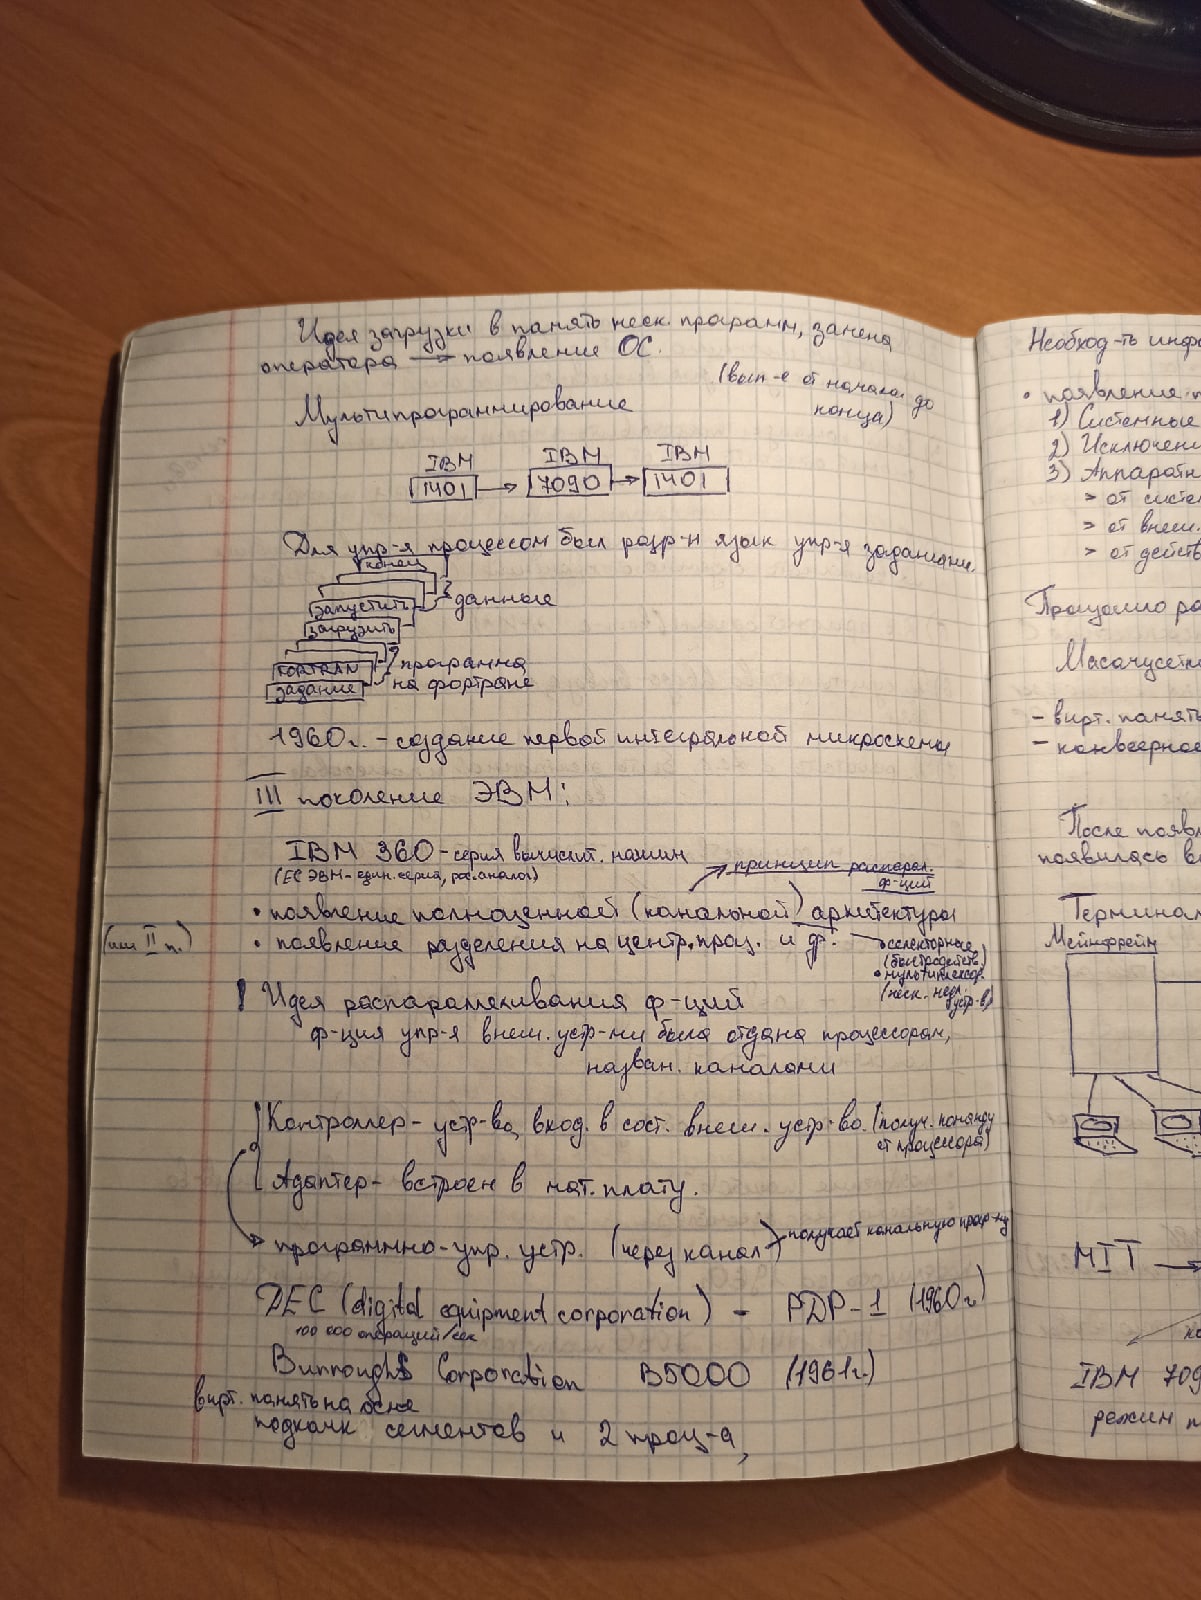 Идея загрузки в память неск. программ, замена
оператора → появление ОС.
(вып-е от начала до
конца)
Мультипрограммирование
IBM IBM IBM
1401 → 7090 → 1401
Для упр-я процессом был разр-н язык упр-я заданиями.
конец
запустить
загрузить
данные
FORTRAN
задание
программа
на фортране
1960г. - создание первой интегральной микросхемы
III поколение ЭВМ:
IBM 360 - серия вычислит. машин
(ЕС ЭВМ - един. серия, рос. аналог)
принцип распарал.
ф-ций
• появление полноценной (канальной) архитектуры
(или II п.)
• появление разделения на центр. проц. и ф.
• селекторные
(быстродейств)
• мультиплексор.
(неск. медл.
устр-в)
! Идея распараллеливания ф-ций
ф-ция упр-я внеш. устр-ми была отдана процессорам,
назван. каналами
Контроллер - устр-во, вход. в сост. внеш. устр-ва. (получ. команду
от процессора)
Адаптер - встроен в мат. плату.
программно-упр. устр. (через канал) получает канальную прогр-му
DEC (digital equipment corporation) - PDP-1 (1960г)
100 000 операций/сек
Burroughs Corporation B5000 (1961г.)
вирт. память на осн.
подкачк сегментов и 2 проц-а,
Необход-ть инфо
• появление п
1) Системные
2) Исключени
3) Аппаратн
> от систе
> от внеш.
> от действ
Прошло ра
Масачусетс
- вирт. память
- конвеерное
После появл
появилась в
Терминал
Мейнфрейм
MIT →
IBM 709
режим п